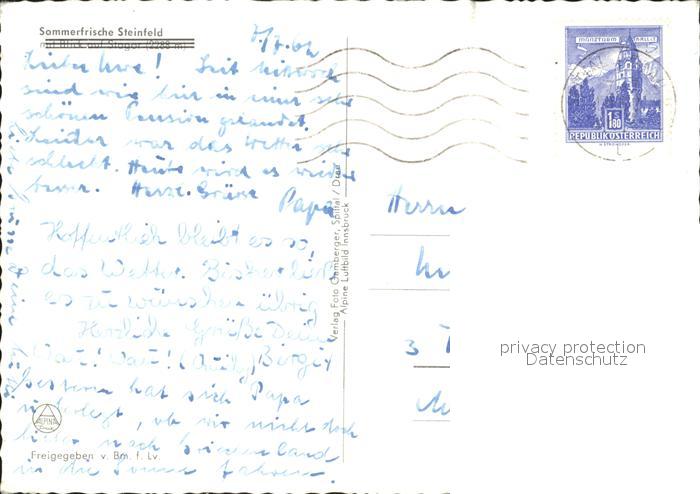 Sommerfrische Steinfeld
7/7.62
Lieber Uwe! Seit Mittwoch
sind wir hier in einer sehr
schönen Pension gelandet.
Leider war das Wetter sehr
schlecht. Heute wird es wieder
besser. Herzl. Grüsse
Papa
Hoffentlich bleibt es so,
das Wetter. Bisher ließ
es zu wünschen übrig
Herzliche Grüße Deine
Birgit
Gestern hat sich Papa
überlegt, ob wir nicht doch
lieber nach Griechenland
in die Sonne fahren.
Freigegeben v. Bm. f. Lv.
ALPINA
Verlag Foto Gamberger, Spittal / Drau
Alpine Luftbild Innsbruck
MÜNZTURM HALL I. T.
1.80
REPUBLIK ÖSTERREICH
Herrn
3
privacy protection
Datenschutz